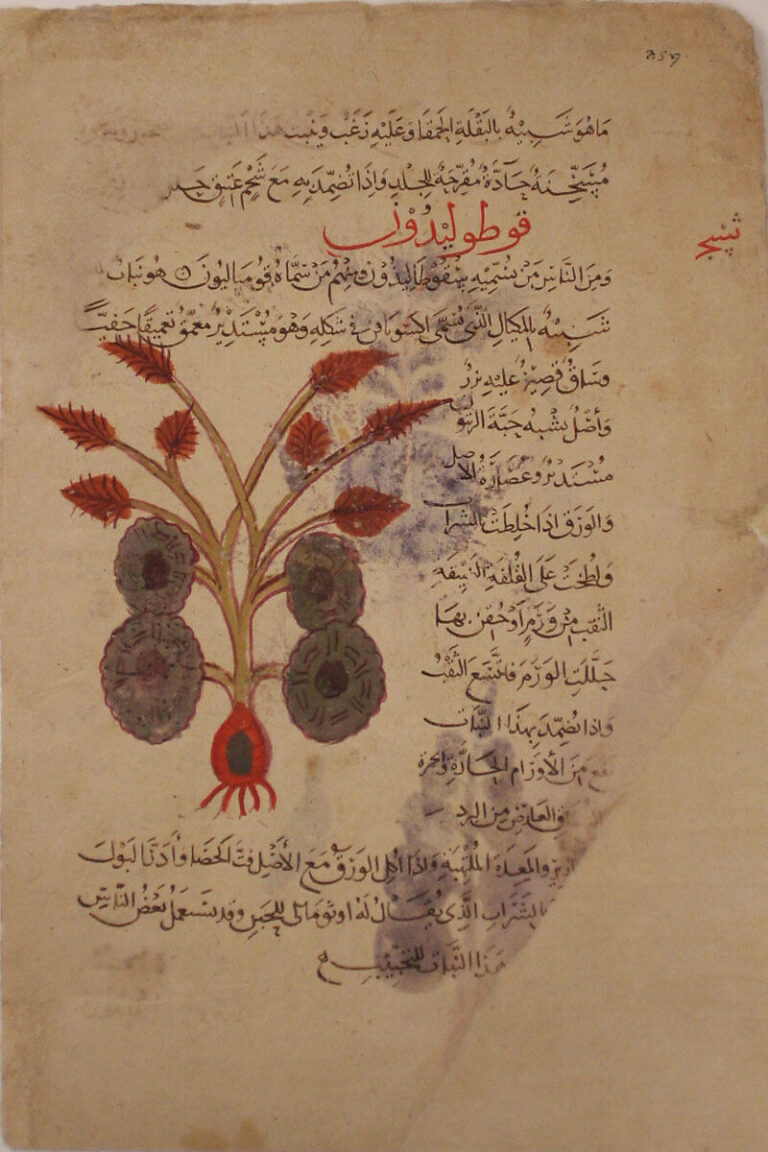 ما هو شبيه بالبقلة الحمقا وعليه زغب وينبت هذا
مسخنة حادة مقرحة للجلد واذا تضمد به مع شحم عتيق
قوطوليدون
ومن الناس من يسميه سقوطاليدون ومنهم من سماه قومباليون هو نبات
شبيه بالمكيال الذي يسمى اكسوبافن في شكله وهو مستدير معمق تعميقا خفيا
وساق قصير عليه بزر
واصل يشبه حبة الزيتون
مستدير وعصارة الاصل
والورق اذا خلطت بالشراب
ولطخت على القلفة الضيقة
الثقب من ورم او حقن بها
حللت الورم فاتسع الثقب
واذا تضمد بهذا النبات
نفع من الاورام الحارة والحمرة
العارض من البرد
والمعدة الملتهبة واذا اكل الورق مع الاصل فت الحصا وادر البول
بالشراب الذي يقال له اونومالي للحبن وقد يستعمل بعض الناس
هذا النبات للتحبيب